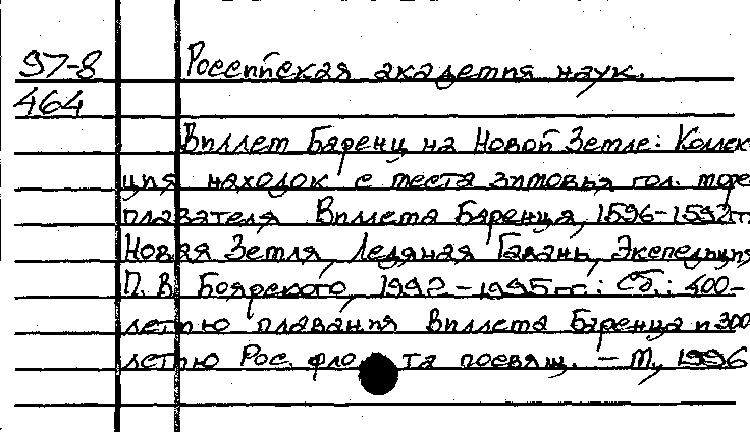 97-8 Российская академия наук.
464
Виллем Баренц на Новой Земле: Коллек-
ция находок с места зимовья гол. море-
плавателя Виллема Баренца, 1596-1597гг.
Новая Земля, Ледяная Гавань, Экспедиция
П. В. Боярского, 1992-1995гг.: Сб.: 400-
летию плавания Виллема Баренца и 300
летию Рос. флота посвящ. – М., 1996